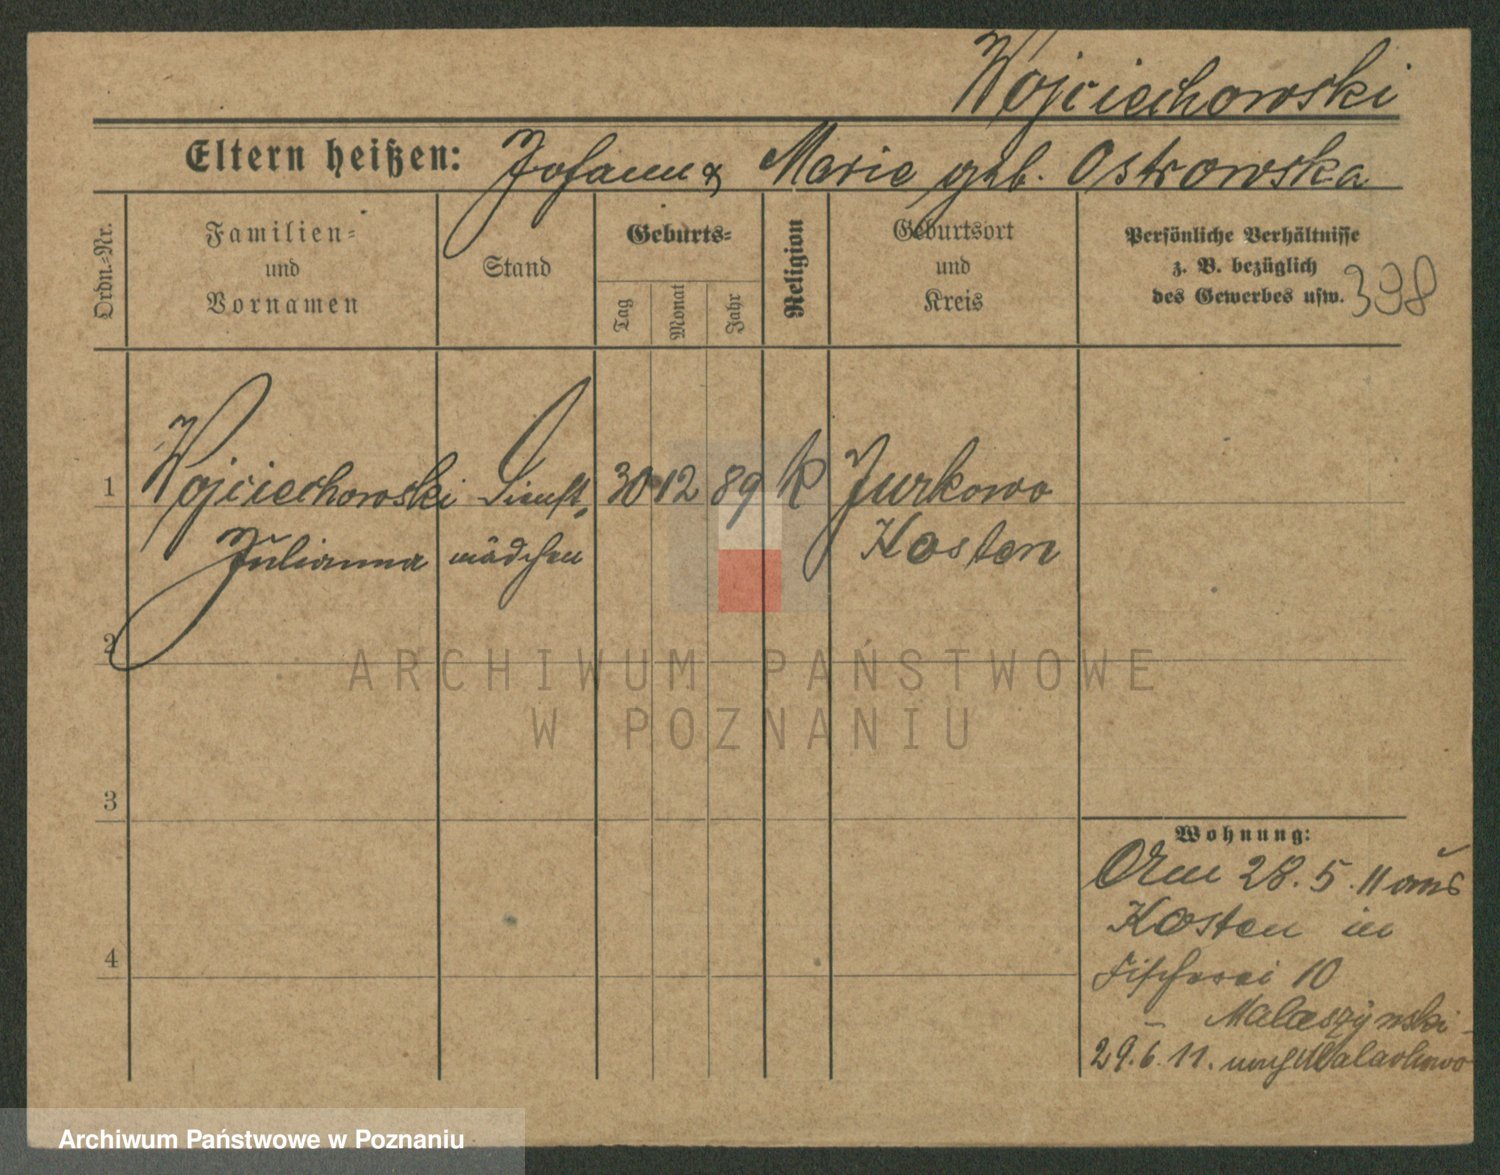 Wojciechowski
Eltern heißen: Johann & Marie geb. Ostrowska
Ordn.-Nr.
Familien-
und
Vornamen
Stand
Geburts-
Tag
Monat
Jahr
Religion
Geburtsort
und
Kreis
Persönliche Verhältnisse
z. B. bezüglich
des Gewerbes usw.
398
1 Wojciechowski Dienst- 30 12 89 K Jurkowo
Julianna mädchen Kosten
2
ARCHIWUM PAŃSTWOWE
W POZNANIU
3
Wohnung:
28.5.11 aus
Kosten in
Fischerei 10
Malaszynski
4
29.6.11. nach Malachowo
Archiwum Państwowe w Poznaniu